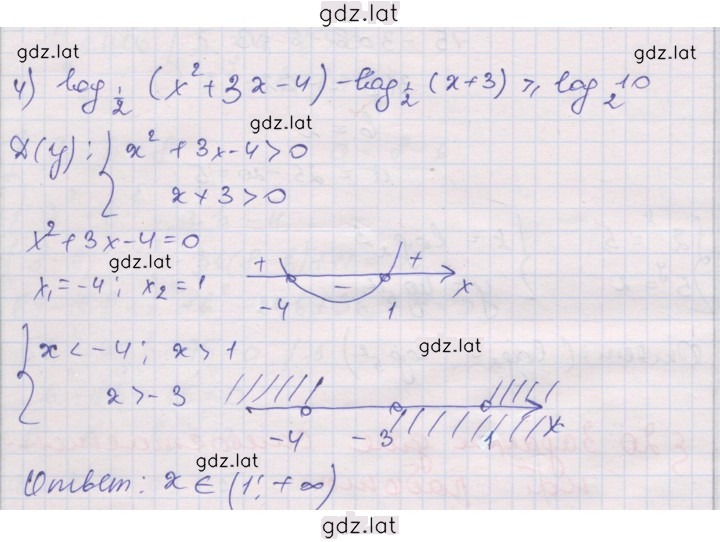 gdz.lat
gdz.lat
gdz.lat
4) log 1/2 (x² + 3x - 4) - log 1/2 (x+3) ≥ log₂ 10
gdz.lat
D(y): { x² + 3x - 4 > 0
x + 3 > 0
x² + 3x - 4 = 0
gdz.lat
x₁ = -4; x₂ = 1
+ - + x
-4 1
{ x < -4; x > 1
gdz.lat
x > -3
-4 -3 1 x
gdz.lat
Ответ: x ∈ (1; +∞)
gdz.lat